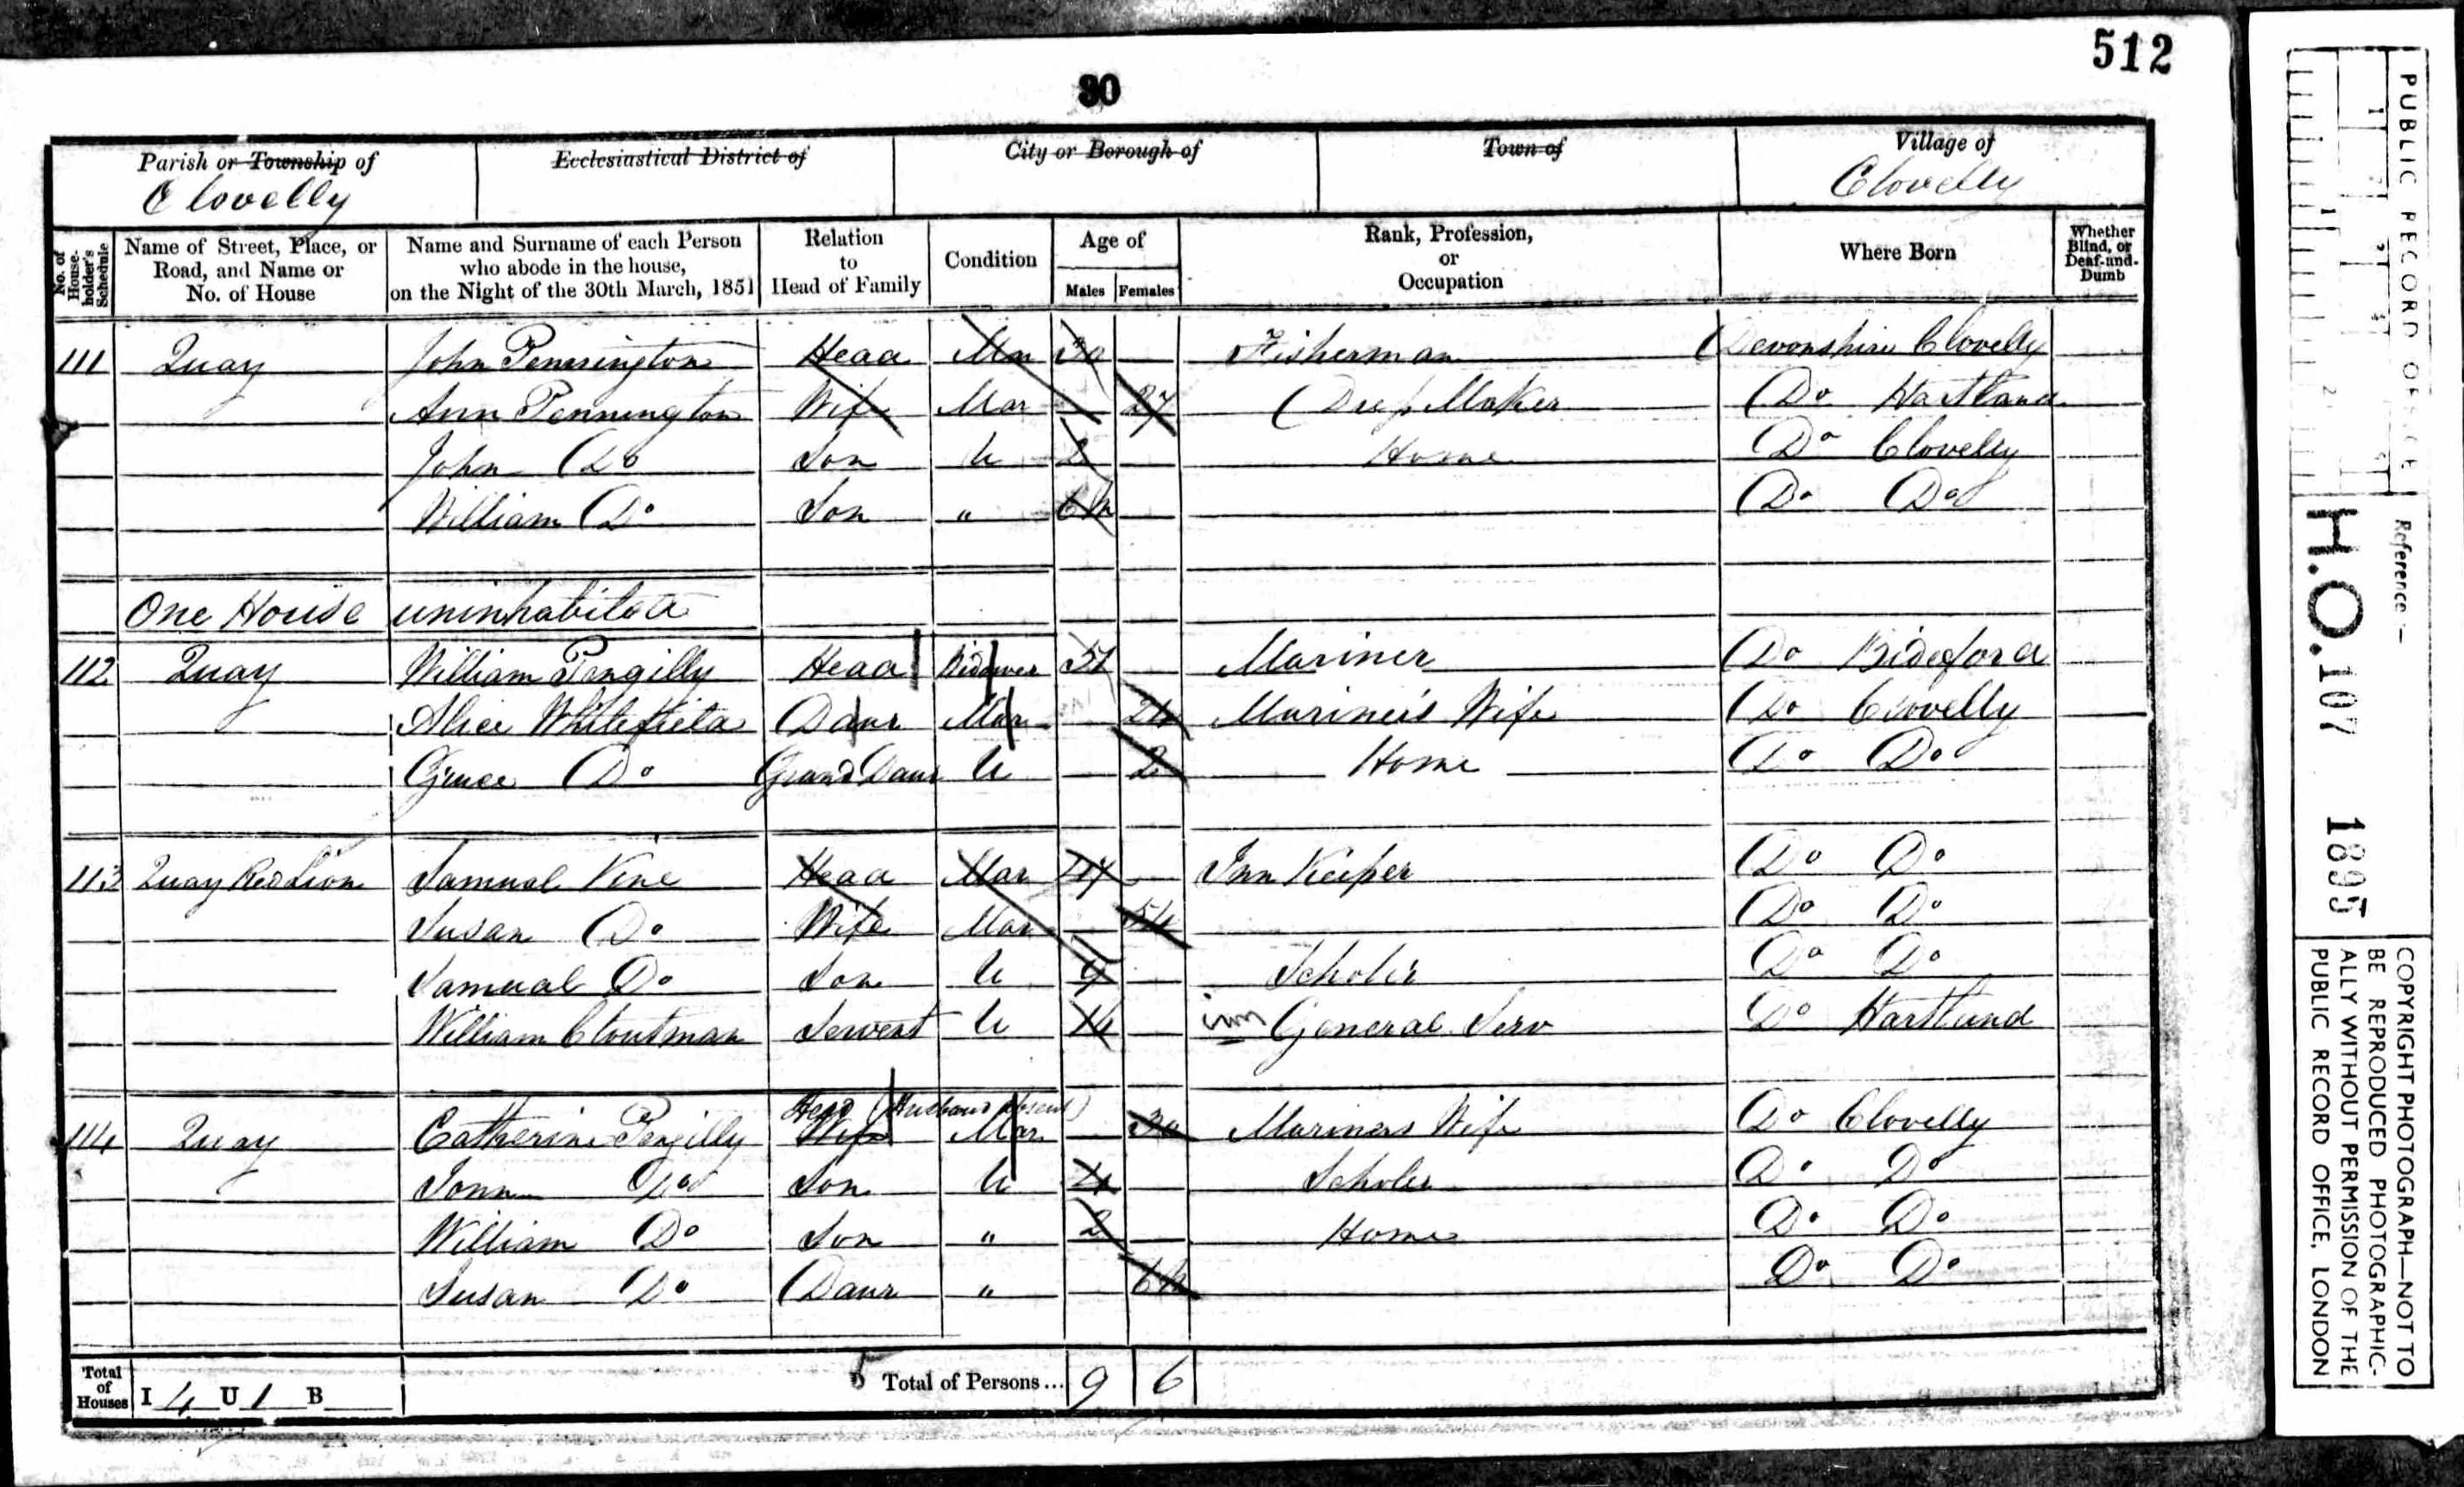 512
30
Parish or Township of Clovelly
Ecclesiastical District of
City or Borough of
Town of
Village of Clovelly
No. of House-holder's Schedule
Name of Street, Place, or Road, and Name or No. of House
Name and Surname of each Person who abode in the house, on the Night of the 30th March, 1851
Relation to Head of Family
Condition
Age of
Males Females
Rank, Profession, or Occupation
Where Born
Whether Blind, or Deaf-and-Dumb
111 Quay John Pennington Head Mar 30 Fisherman Devonshire Clovelly
Ann Pennington Wife Mar 27 Maker Do Hartland
John Do Son U 2 Home Do Clovelly
William Do Son " 6m Do Do
One House uninhabited
112 Quay William Pengilly Head Widower 51 Mariner Do Bideford
Alice Whitefield Daur Mar 24 Mariner's Wife Do Clovelly
Grace Do Grand Daur U 2 Home Do Do
113 Quay Red Lion Samual Vine Head Mar Inn Keeper Do Do
Susan Do Wife Mar 54 Do Do
Samual Do Son U 9 Scholer Do Do
William Cloutman Servent U 14 General Serv Do Hartland
Head (Husband absent)
114 Quay Catherine Pengilly Wife Mar 30 Mariners Wife Do Clovelly
John Do Son U 4 Scholer Do Do
William Do Son " 2 Home Do Do
Susan Do Daur " 6m Do Do
Total of Houses I 4 U 1 B
5 Total of Persons... 9 6
PUBLIC RECORD OFFICE
Reference:-
H.O. 107 1895
COPYRIGHT PHOTOGRAPH—NOT TO
BE REPRODUCED PHOTOGRAPHIC-
ALLY WITHOUT PERMISSION OF THE
PUBLIC RECORD OFFICE, LONDON